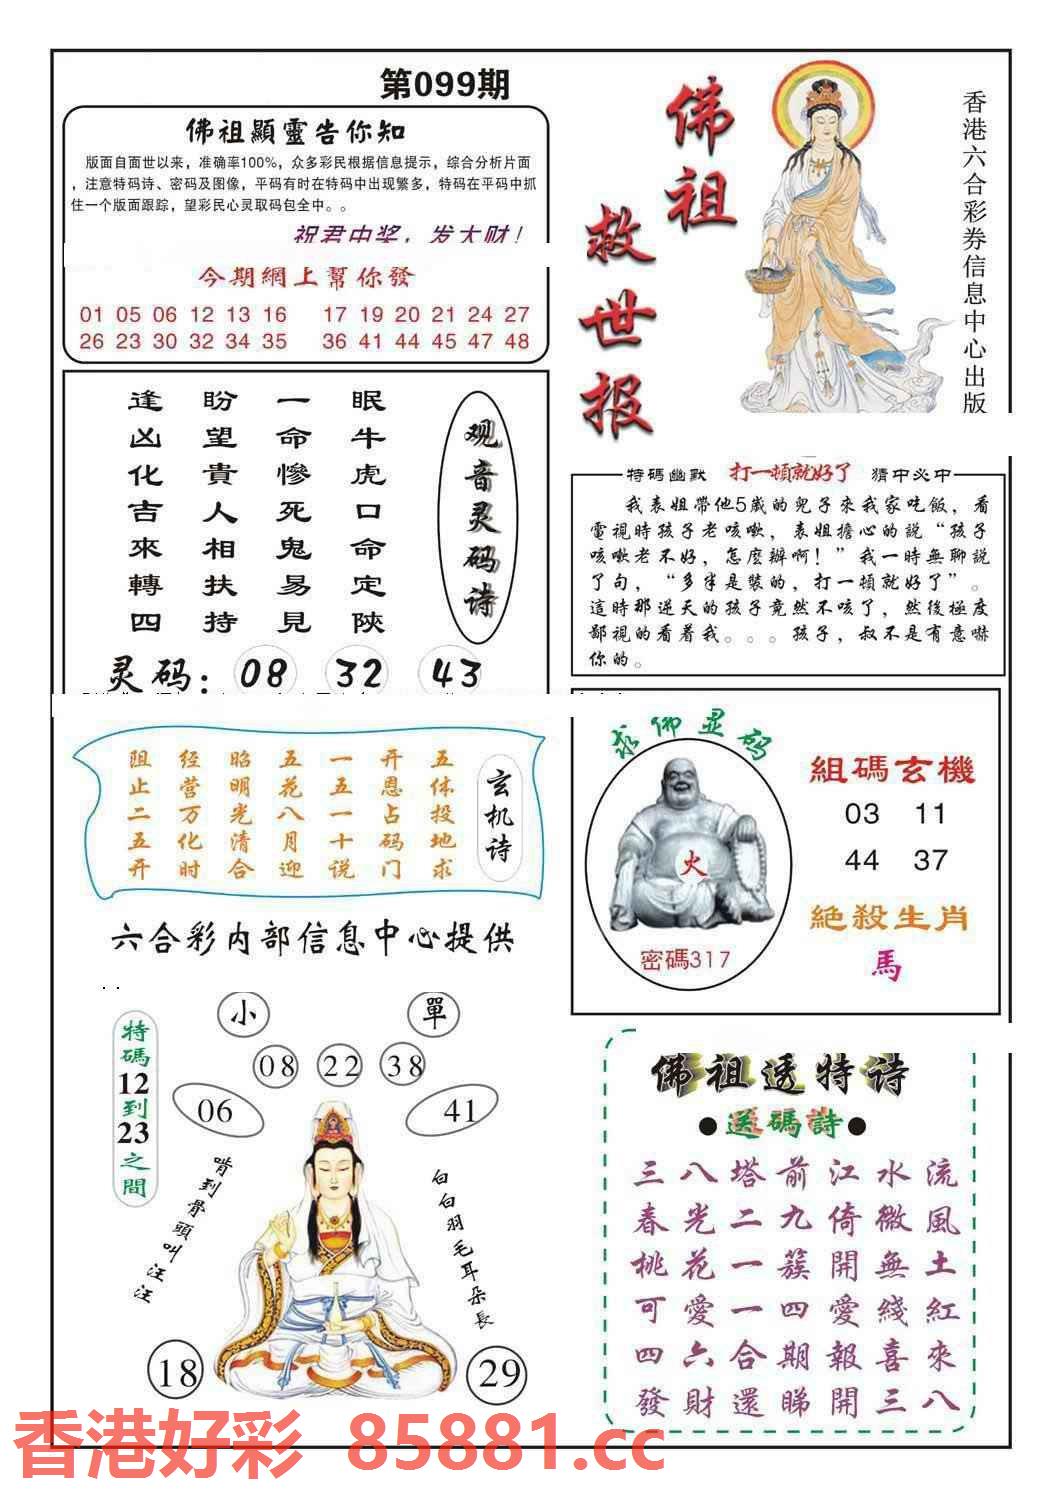 第099期
佛祖顯靈告你知
版面自面世以来，准确率100%，众多彩民根据信息提示，综合分析片面
，注意特码诗、密码及图像，平码有时在特码中出现繁多，特码在平码中抓
住一个版面跟踪，望彩民心灵取码包全中。。
祝君中奖，发大财！
今期網上幫你發
01 05 06 12 13 16 17 19 20 21 24 27
26 23 30 32 34 35 36 41 44 45 47 48
佛祖
救世报
香港六合彩券信息中心出版
观音灵码诗
眠牛虎口命定陝
一命慘死鬼易見
盼望貴人相扶持
逢凶化吉來轉四
灵码：08 32 43
特碼幽默 打一頓就好了 猜中必中
我表姐帶他5歲的兒子來我家吃飯，看
電視時孩子老咳嗽，表姐擔心的說“孩子
咳嗽老不好，怎麼辦啊！”我一時無聊説
了句，“多半是裝的，打一頓就好了”。
這時那逆天的孩子竟然不咳了，然後極度
鄙視的看着我。。。孩子，叔不是有意嚇
你的。
玄机诗
五体投地求
开恩占码门
一五一十说
五花八月迎
昭明光清合
经营万化时
阻止二五开
六合彩内部信息中心提供
求佛显码
火
密碼317
組碼玄機
03 11
44 37
絕殺生肖
馬
特碼12到23之間
小
單
08 22 38
06
41
啃到骨頭叫汪汪
白白羽毛耳朵長
18
29
佛祖透特诗
●送碼詩●
三八塔前江水流
春光二九倚微風
桃花一簇開無土
可愛一四愛綫紅
四六合期報喜來
發財還睇開三八
香港好彩 85881.cc